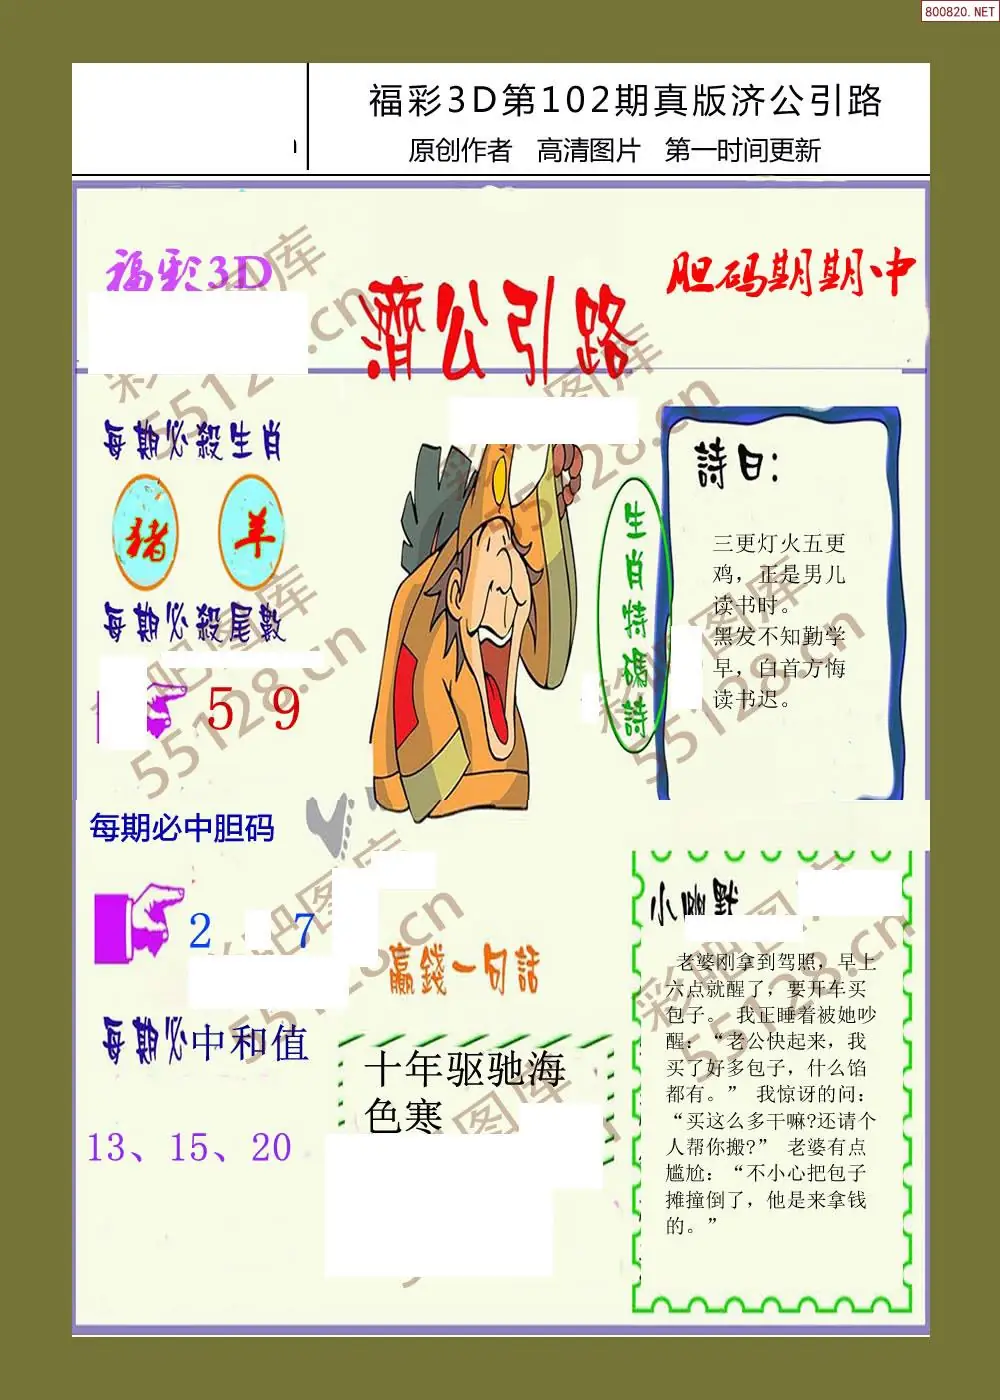 800820.NET
福彩3D第102期真版济公引路
原创作者 高清图片 第一时间更新
福彩3D
胆码期期中
濟公引路
每期必殺生肖
猪 羊
每期必殺尾數
5 9
生肖特碼詩
詩曰：
三更灯火五更
鸡，正是男儿
读书时。
黑发不知勤学
早，白首方悔
读书迟。
每期必中胆码
2 7
每期必中和值
13、15、20
贏錢一句話
十年驱驰海
色寒
小幽默
老婆刚拿到驾照，早上
六点就醒了，要开车买
包子。 我正睡着被她吵
醒：“老公快起来，我
买了好多包子，什么馅
都有。” 我惊讶的问：
“买这么多干嘛?还请个
人帮你搬?” 老婆有点
尴尬：“不小心把包子
摊撞倒了，他是来拿钱
的。”
彩吧图库
55128.cn
彩吧图库
55128.cn
彩吧图库
55128.cn